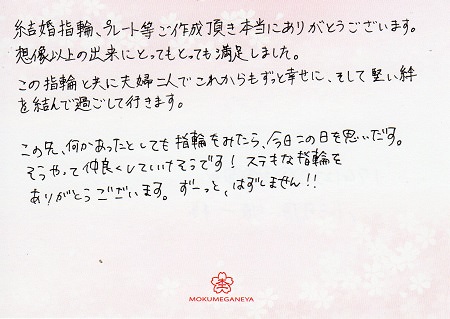 結婚指輪、プレート等ご作成頂き本当にありがとうございます。
想像以上の出来にとってもとっても満足しました。
この指輪と共に夫婦二人でこれからもずっと幸せに、そして堅い絆
を結んで過ごして行きます。
この先、何かあったとしても指輪をみたら、今日この日を思いだす。
そうやって仲良くしていけそうです！ステキな指輪を
ありがとうございます。ずーっと、はずしません!!
MOKUMEGANEYA